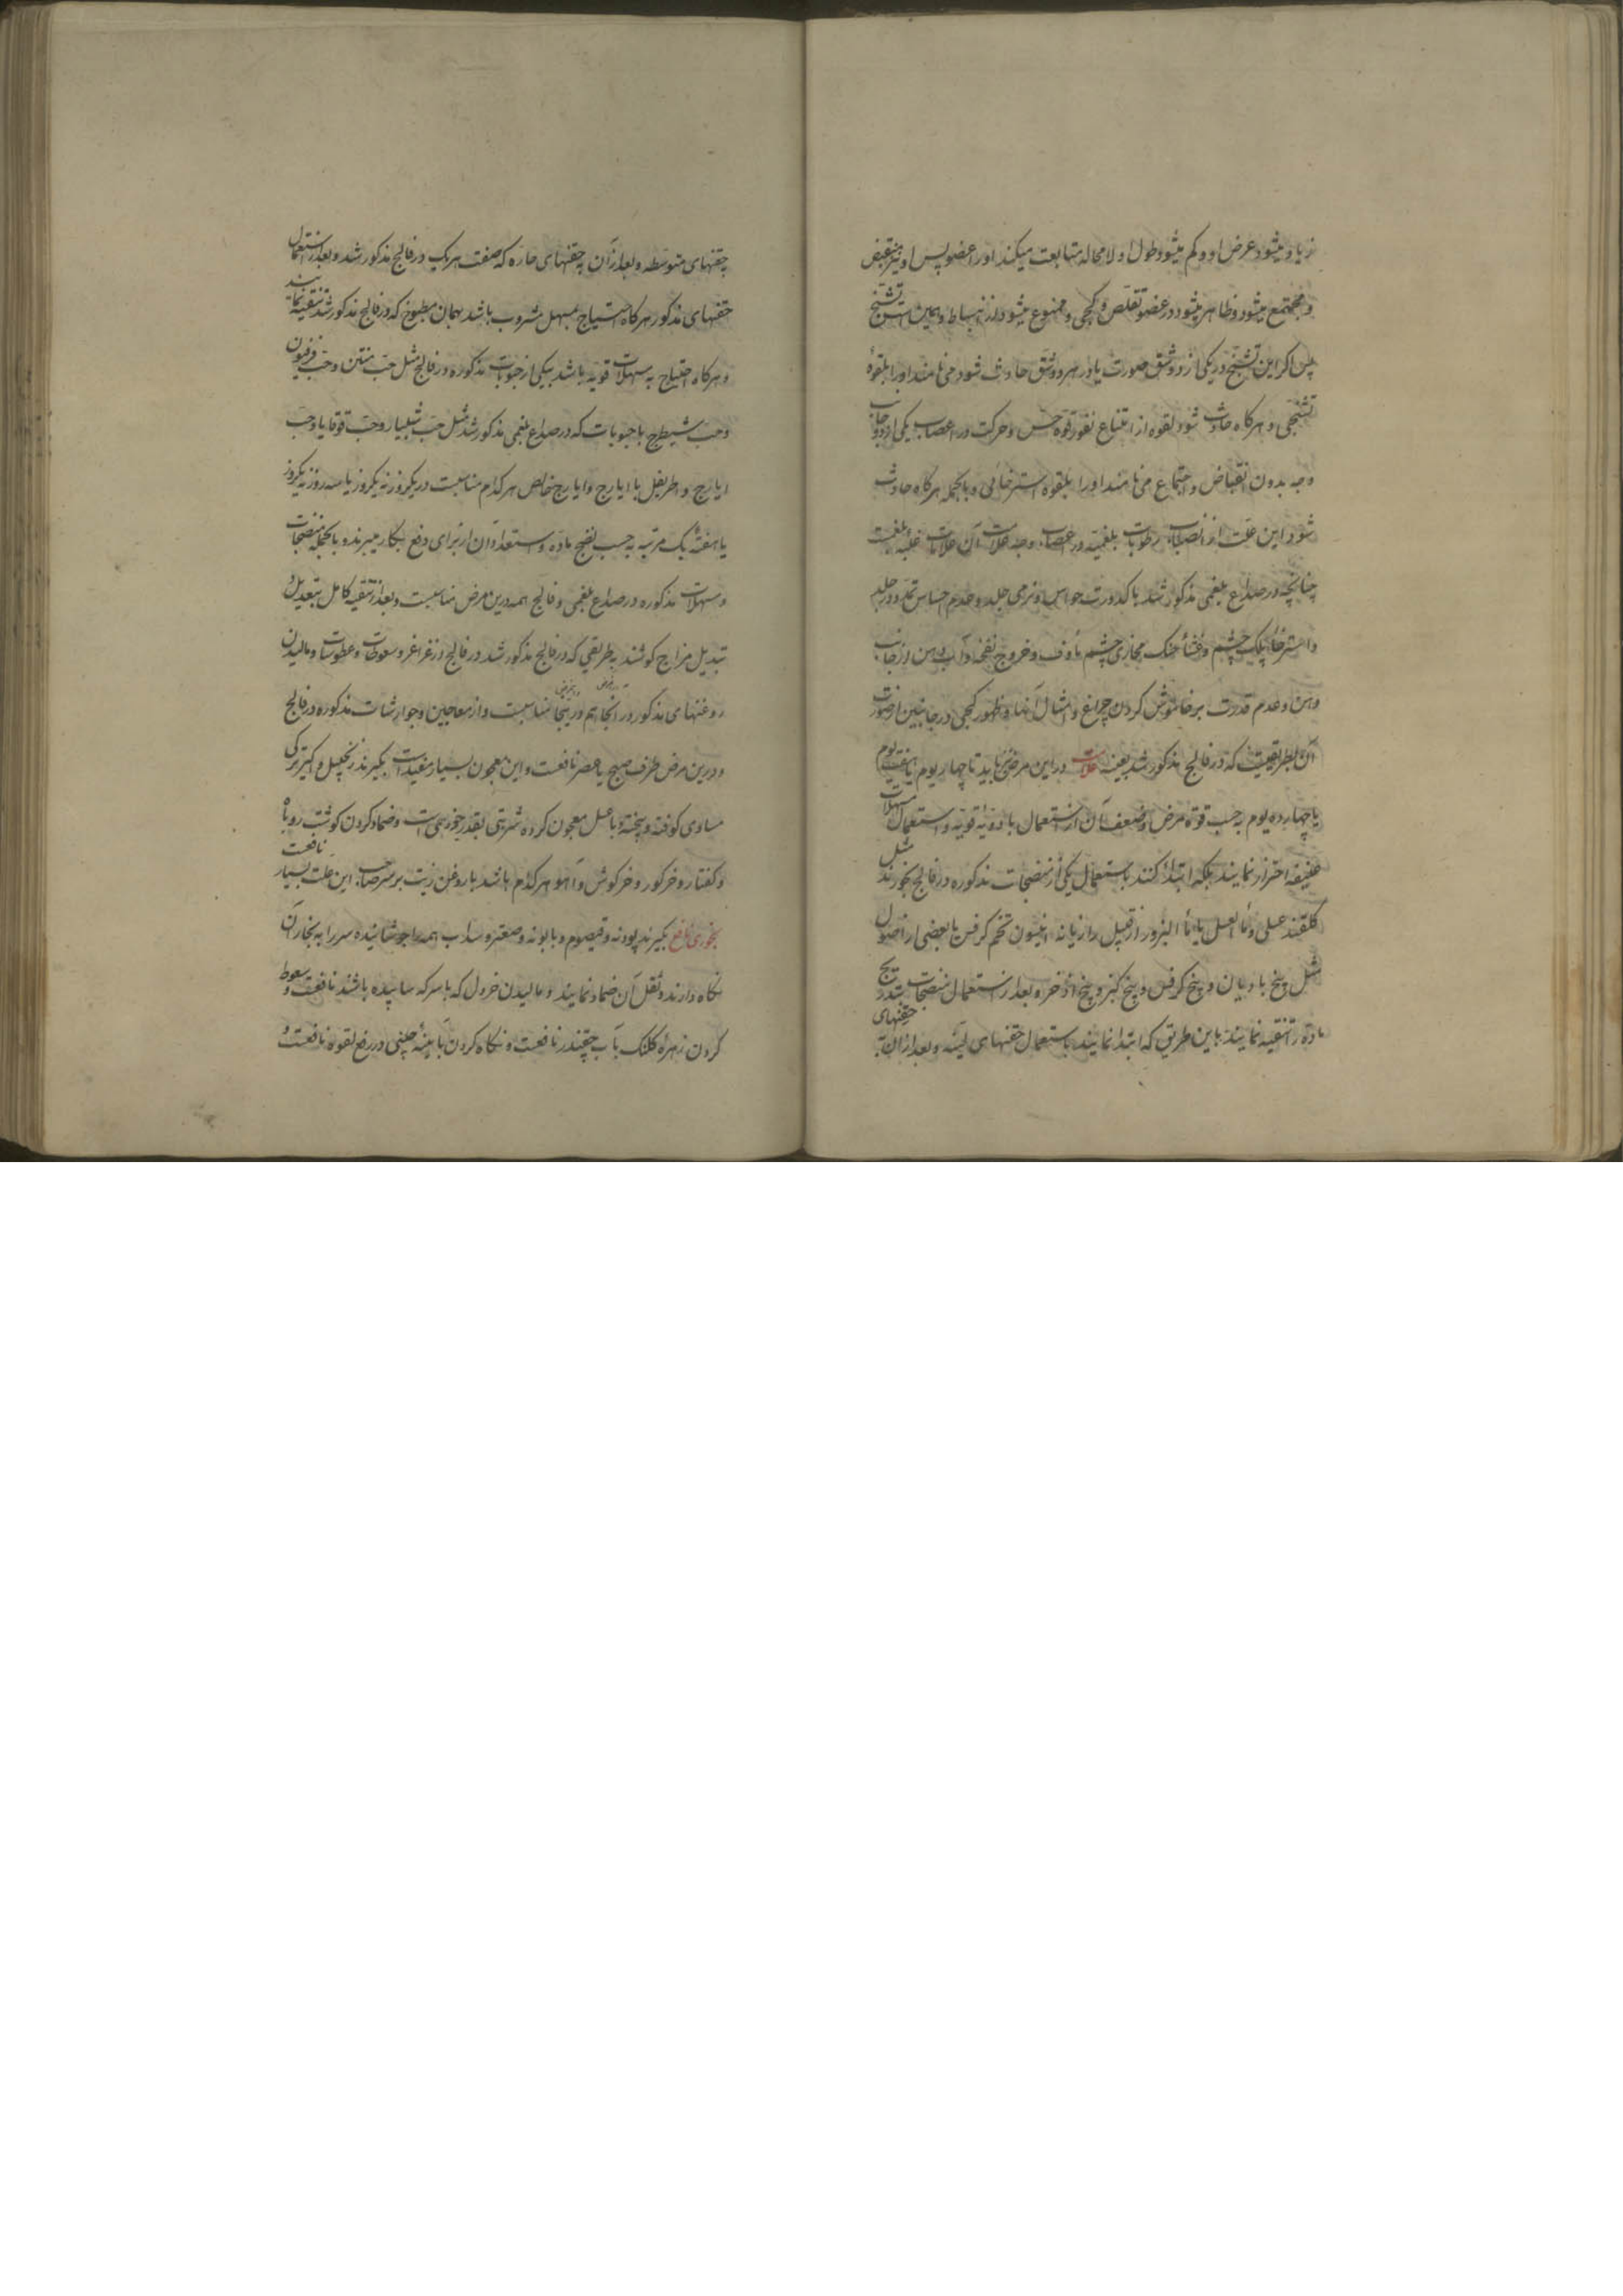 زیاد میشود عرض او و کم میشود طول او لامحاله متابعت میکند او را عضو پس او نیز منقبض
و مجتمع میشود و ظاهر میشود در عضو تقلص و کجی و ممنوع میشود از انبساط و همین است تشنج
پس اکر این تشنج در یکی از دو شق صورت یا در هر دو شق حادث شود می نامند او را بلقوهٔ
تشنجی و هرکاه حادث شود لقوه از امتناع نفوذ قوه حس و حرکت در اعصاب یکی از دو جانب
وجه بدون انقباض و اجتماع می نامند او را بلقوه استرخائی و بالجمله هرکاه حادث
شود این علت از انصباب رطوبات بلغمیه در اعصاب وجه علامت آن علامات غلبه بلغمست
چنانچه در صداع بلغمی مذکور شد با کدورت حواس و نرمی جلد و عدم احساس تمدد در جلد
و استرخاء پلک چشم و غشاء حنک محاذی چشم مأوف و خروج نفخه و آب دهن از جانب
دهن و عدم قدرت بر خاموش کردن چراغ و امثال آنها و ظهور کجی در جانبین از صورت
آن بطریقیست که در فالج مذکور شد بعینه علامت در این مرض باید تا چهار یوم یا هفت یوم
یا چهارده یوم به حسب قوة مرض و ضعف آن از استعمال بادویه قویه و استعمال مسهلات
عنیفه احتراز نمایند بلکه ابتداء کنند باستعمال یکی از منضجات مذکوره در فالج بخورند مثل
کلقند عسلی و ماء العسل یا ماء البزور از قبیل رازیانه انیسون تخم کرفس با بعضی از اصول
مثل بیخ بادیان و بیخ کرفس و بیخ کبر و بیخ اذخر و بعد از استعمال منضجات بتدریج
ماده را تنقیه نمایند باین طریق که ابتدا نمایند باستعمال حقنهای لینه و بعد از آن به حقنهای
حقنهای متوسطه و بعد از آن بحقنهای حاره که صفت هر یک در فالج مذکور شد و بعد از استعمال
حقنهای مذکور هرکاه احتیاج بمسهل مشروب باشد بهمان مطبوخ که در فالج مذکور شد تنقیه نمایند
و هرکاه احتیاج به مسهلات قویه باشد بیکی از حبوبات مذکوره در فالج مثل حب منتن و حب فرفیون
و حب شیطرج یا حبوبات که در صداع بلغمی مذکور شد مثل حب شبیار و حب قوقایا و حب
ایارج و اطریفل با ایارج و ایارج خالص هر کدام مناسبست در یکروز نه یکروز یا سه روز نه یکروز
یا هفتهٔ یک مرتبه به حسب نضج ماده و استعداد آن از برای دفع بکار میبرند و بالجمله منضجات
و مسهلات مذکوره در صداع بلغمی و فالج همه درین مرض مناسبست و بعد از تنقیه کامل بتعدیل و
تبدیل مزاج کوشند به طریقی که در فالج مذکور شد در فالج از غراغر و سعوطات و عطوسات و مالیدن
روغنهای مذکور در آنجا هم در ینجا مناسبست و از معاجین و جوارشات مذکوره در فالج
و درین مرض طرف صبح یا عصر نافعست و این معجون بسیار مفیدست بکیرند زنجبیل و اکیر ترکی
مساوی کوفته و بیخته با عسل معجون کرده شربتی بقدر جوزهمی است و ضماد کردن کوشت روباه
و کفتار و خرکور و خرکوش و آهو هر کدام باشد با روغن زیت بر سر صاحب این علت بسیار نافعست
بخوری نافع بکیرند پودنه و قیصوم و بابونه و صعتر و سداب همه را جوشانیده سر را به بخار آن
نکاه دارند و ثفل آن ضماد نمایند و مالیدن خردل که با سرکه سائیده باشند نافعست و سعوط
کردن زهرهٔ کلنک بآب چقندر نافعست و نکاه کردن بآیینهٔ چینی در رفع لقوه نافعست و